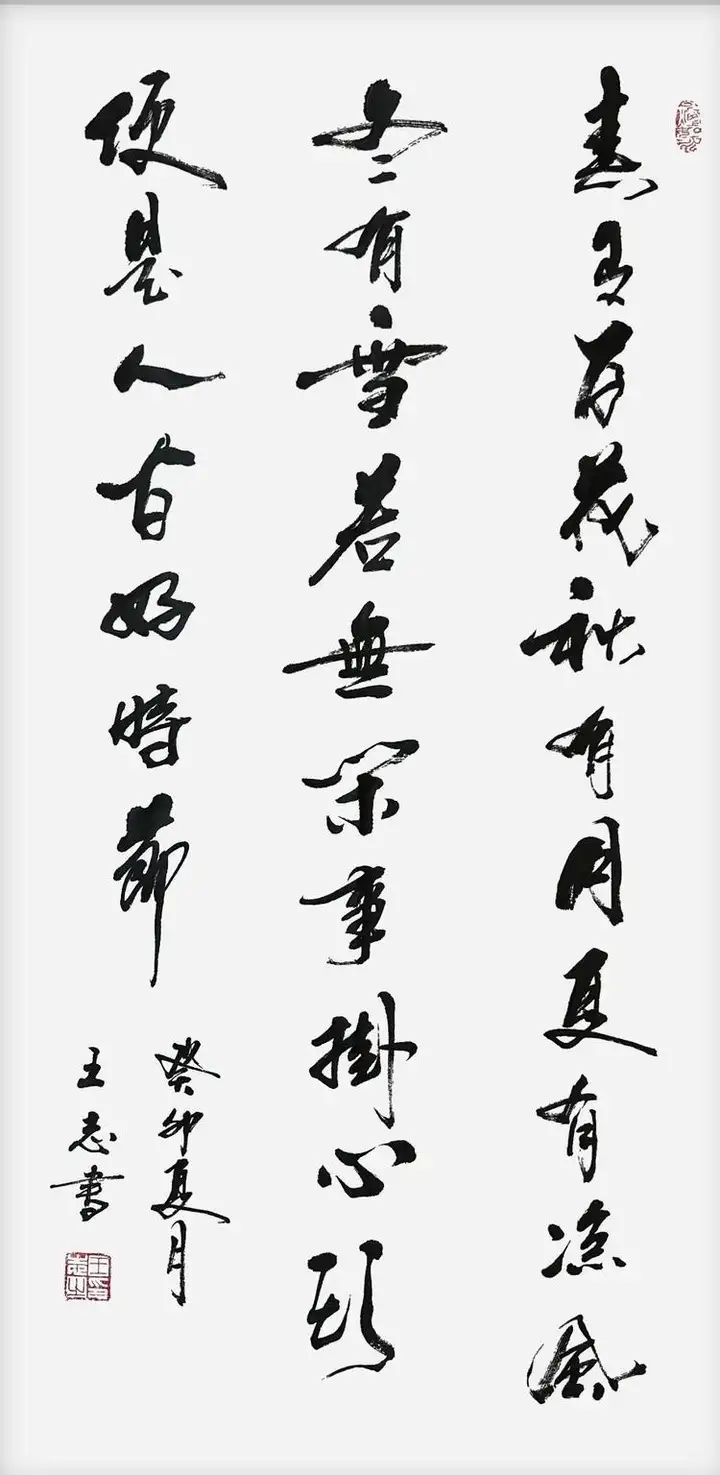 春有百花秋有月夏有凉風
冬有雪若無閑事掛心頭
便是人間好時節
癸卯夏月
王志書